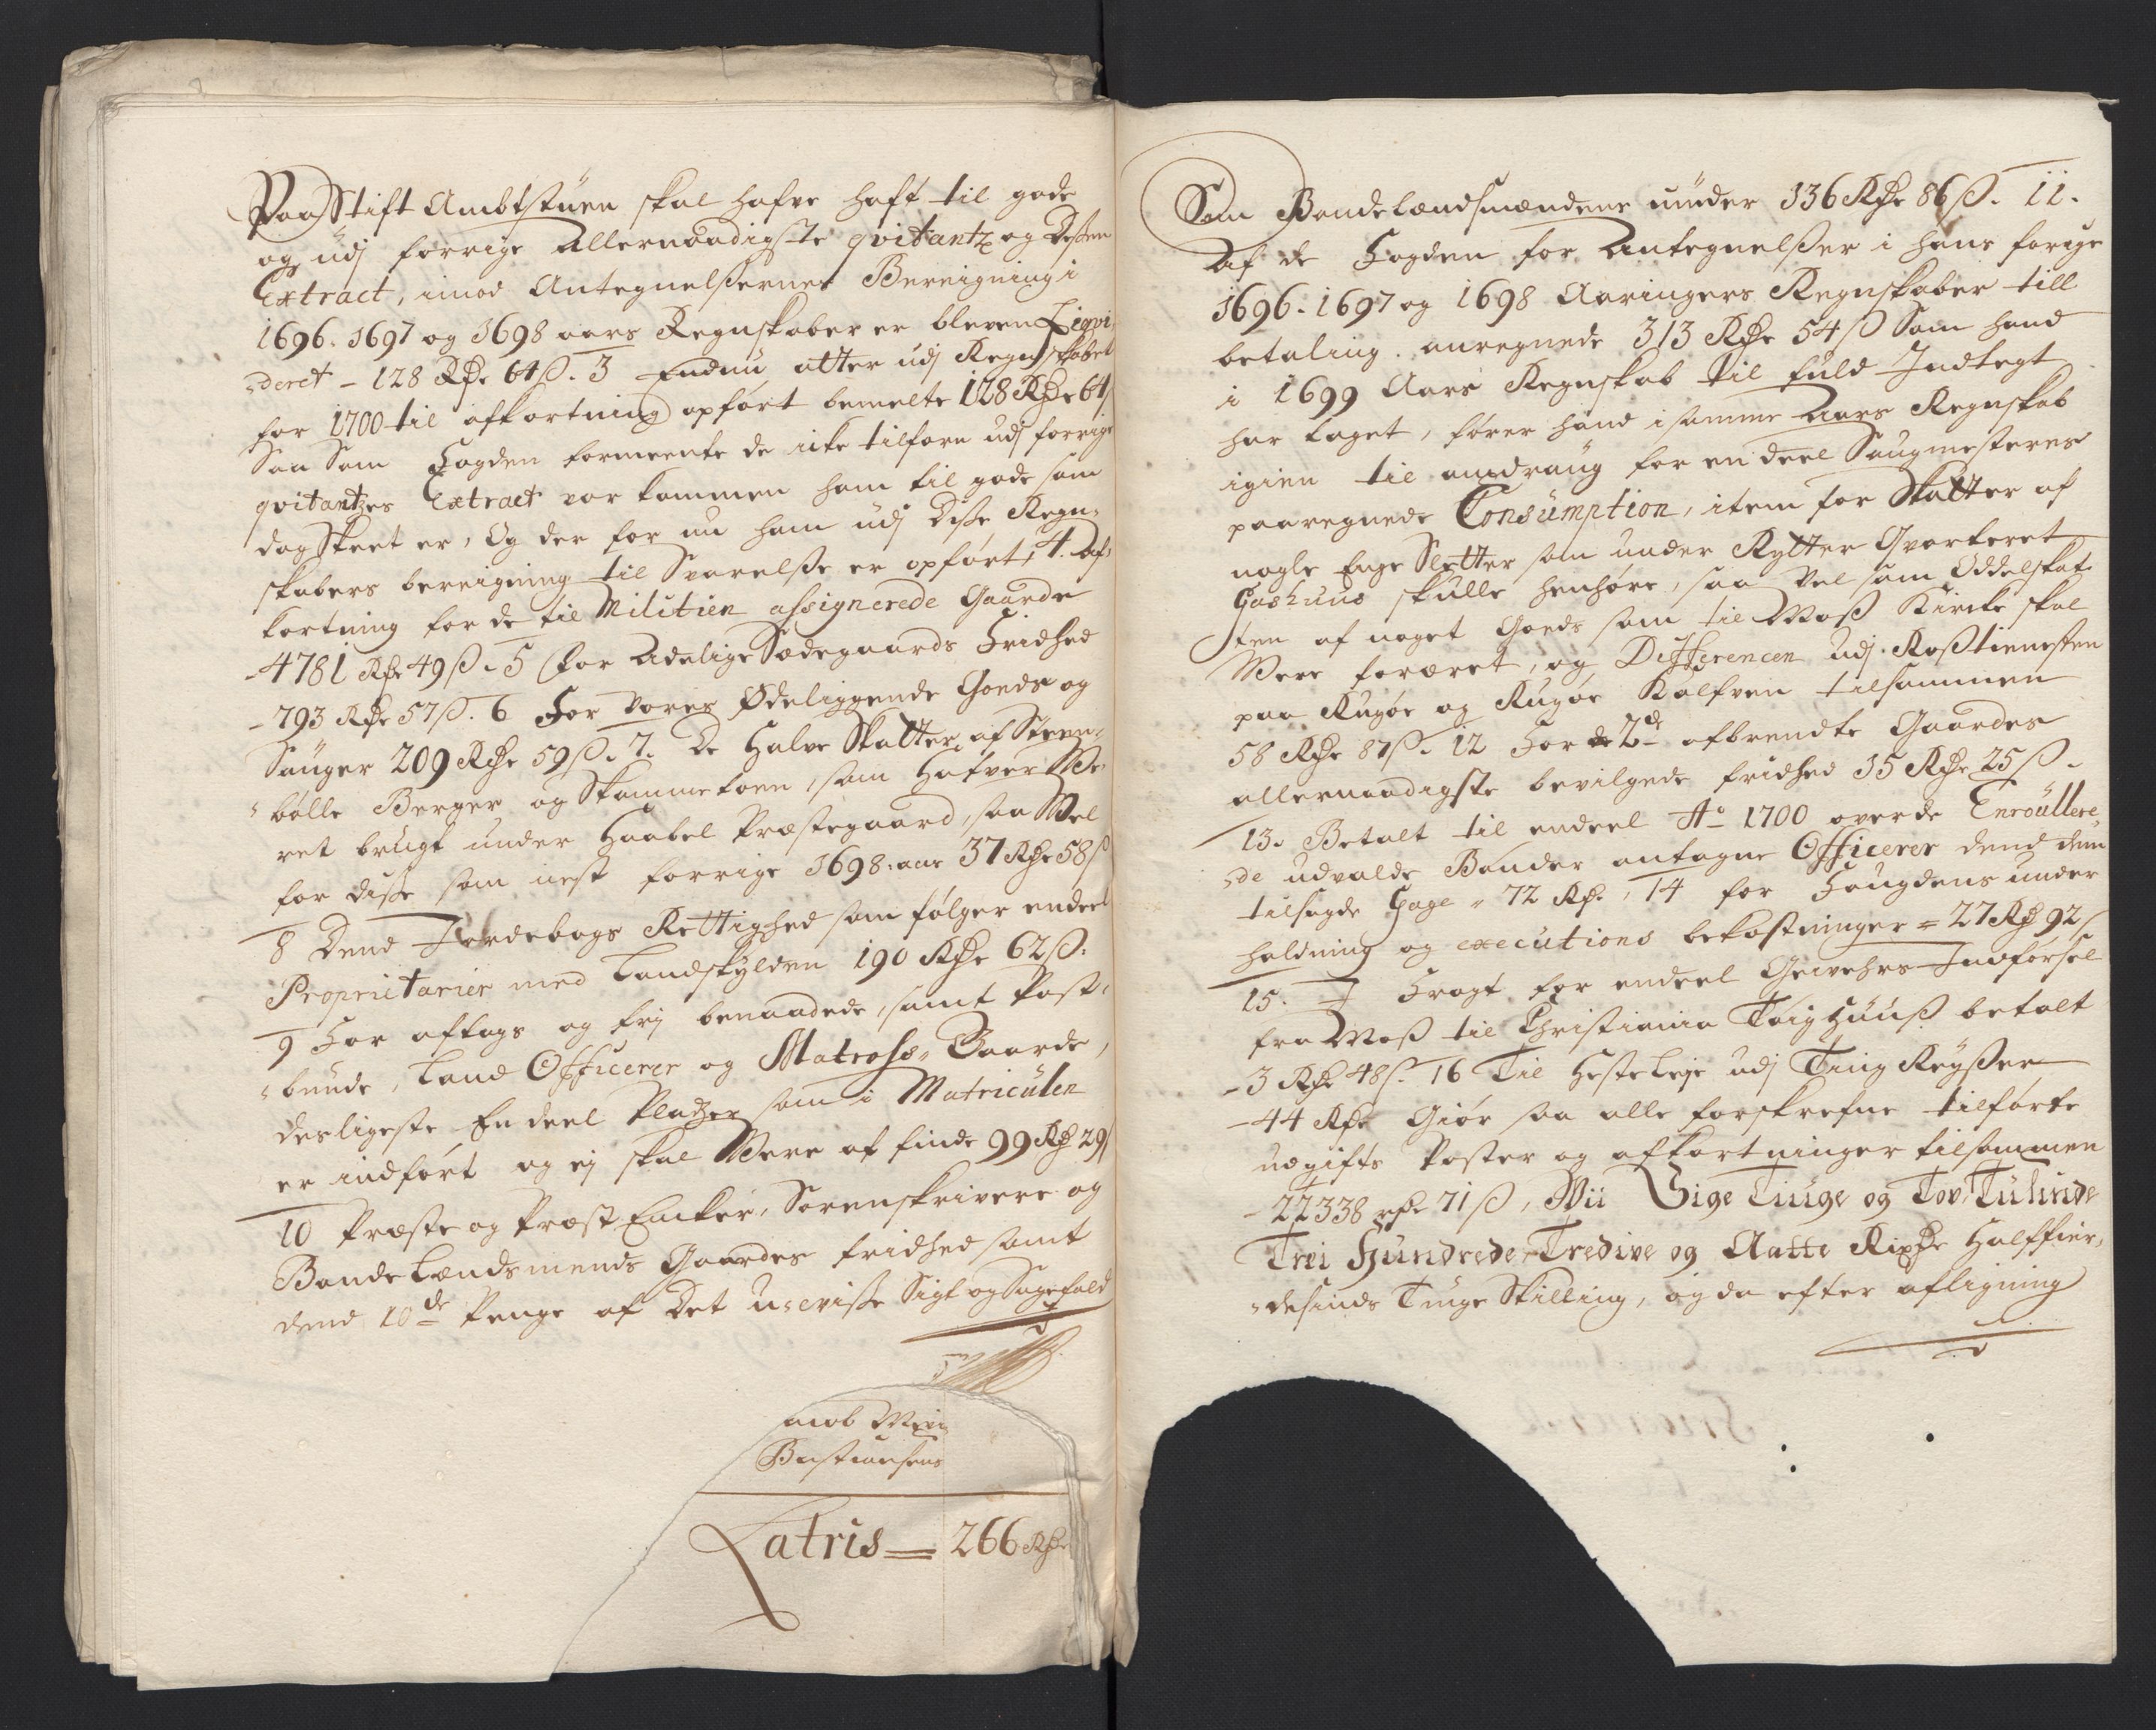 Paa Stift Ambtstuen skal hafve haft til gode
og udj forrige allernaadigste qvitantz og deßen
Extract, imod Antegnelßernes Bereigning i
1696. 1697 og 1698 aars Regnskaber er bleven Liqvi-
deret - 128 Rdr 64 ß. 3 Endnu atter udj Regnskabet
for 1700 til afkortning opført bemelte 128 Rdr 64 ß
Saa Som Fogden formeente de icke tilforn udj forrige
qvitantzes Extract var kommen ham til gode som
dog Skeet er, Og der for nu ham udj diße Regn-
skabers bereigning til Svarelße er opført, 4. Af-
kortning for de til Militien assignerede Gaarde
- 4781 Rdr 49 ß. 5 For Adelige Sædegaards Fridhed
- 793 Rdr 57 ß. 6 For vores Ødeliggende Goeds og
Sauger 209 Rdr 59 ß. 7. De Halve Skatter af Steen-
bølle Berger og Skammekoen, som Hafver We-
ret brugt under Haabel Præstegaard, saa Wel
for diße som nest forrige 1698: aar 37 Rdr 58 ß
8 Dend Jordebogs Rettighed som følger endeel
Proprietarier med Landskylden 190 Rdr 62 ß.
9 For aftags og frj benaadede, samt Post-
bunde, Land Officerer og Matross- Gaarde,
desligeste En deel Pladtzer som i Matriculen
er indført og ej skal Were at finde 99 Rdr 29 ß
10 Præste og Præst Encker, Sorenskrivere og
Bonde Lendsmends Gaardes fridhed samt
dend 10de Penge af Det uvisße Sigt og Sagefald
Bastiansens
Latris = 266 Rdr
Som Bondelændsmændene nünder 136 Rdr 86 ß. 11.
Af de Fogden for Antegnelßer i hans forige
1696. 1697 og 1698 Aaringers Regnskaber till
betaling anregnede 313 Rdr 54 ß Som hand
i 1699 Aars Regnskab til fuld Indtegt
har taget, fører hand i samme Aars Regnskab
igien til omdraug for en deel Saugmesteres
paaregnede Consumption, item for Skatter af
nogle Enge Sletter som under Rytter Qvarteret
Gashuus skulle henhøre, saa vel som Oddelskat-
ten af noget Goeds som til Moß Kircke skal
Were foræret, og Differencen udj Roßtienesten
paa Rugøe og Rugøe Kalfven tilsammen
58 Rdr 87 ß. 12 For de 2de afbrendte Gaardes
allernaadigste bevilgede fridhed 35 Rdr 25 ß.
13. Betalt til endeel Ao 1700 over de Enroullere-
de udvalde Bønder antagne Officerer dend dem
tilsagde Gage - 72 Rdr, 14 for Fangdens under
holdning og executions bekostninger = 27 Rdr 92 ß
15. I Fragt for endeel Geivehrs Indførsel
fra Moß til Christiania Tøighuuß betalt
- 3 Rdr 48 ß. 16 Til Heste Leje udj Ting Reyßer
- 44 Rdr Giør saa alle forskrefne tilførte
udgifts Poster og afkortninger tilsammen
- 22338 rdr 71 ß, Wii Sige Tiuge og Tov Tusinde
Trei Hundrede Tredive og Aatte Rixdr Halffier-
desinds Tiuge Skilling, og da efter afligning